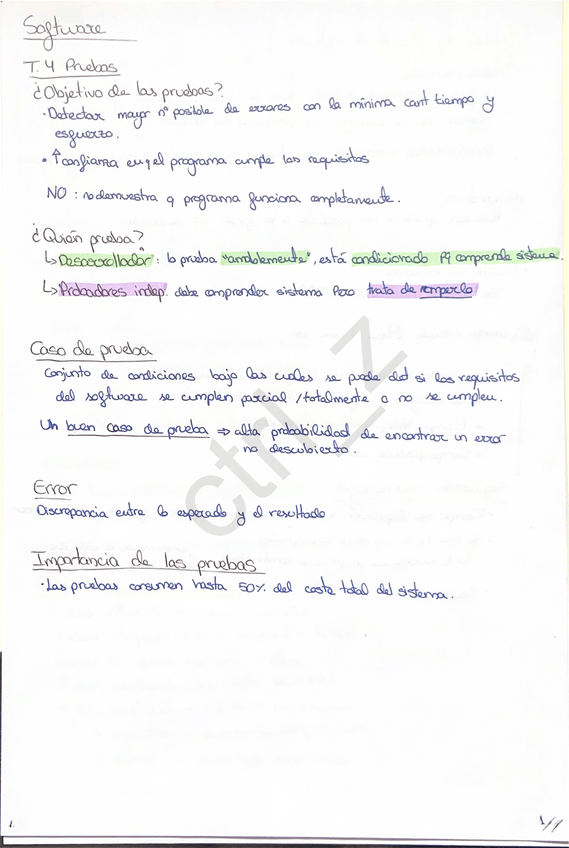 Software
T.4 Pruebas
¿Objetivo de las pruebas?
· Detectar mayor nº posible de errores con la mínima cant tiempo y
esfuerzo.
• ↑ confianza en q el programa cumple los requisitos
NO : no demuestra q programa funciona completamente.
¿Quién prueba?
↳ Desarrollador : lo prueba "amablemente", está condicionado pq comprende sistema.
↳ Probadores indep. debe comprender sistema pero trata de romperlo
Caso de prueba
Conjunto de condiciones bajo las cuales se puede det si los requisitos
del software se cumplen parcial /totalmente o no se cumplen.
Un buen caso de prueba ⇒ alta probabilidad de encontrar un error
no descubierto.
Error
Discrepancia entre lo esperado y el resultado
Importancia de las pruebas
· Las pruebas consumen hasta 50% del coste total del sistema.
ctrl_z
1.